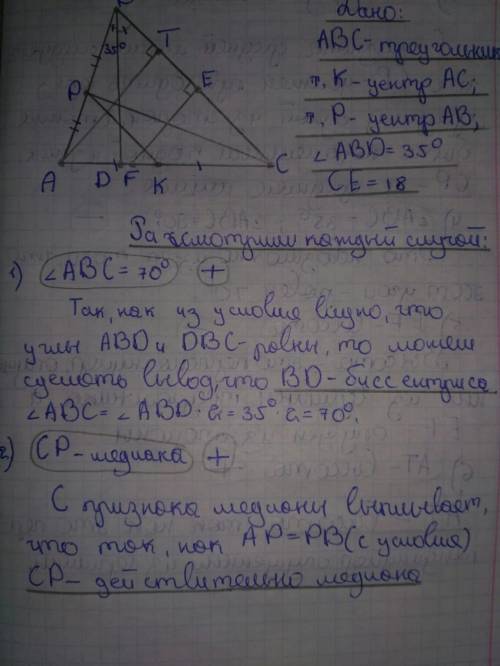 Дано:
ABC - треугольник
т. K - центр AC;
т. P - центр AB;
∠ABD = 35°
CE = 18
35°
T
P
E
A
D
F
K
C
Рассмотрим каждый случай:
1) ∠ABC = 70° +
Так, как из условия видно, что
углы ABD и DBC - равны, то можем
сделать вывод, что BD - биссектриса
∠ABC = ∠ABD · 2 = 35° · 2 = 70°.
2) CP - медиана +
С признака медианы выплывает,
что так, как AP = PB (с условия)
CP - действительно медиана